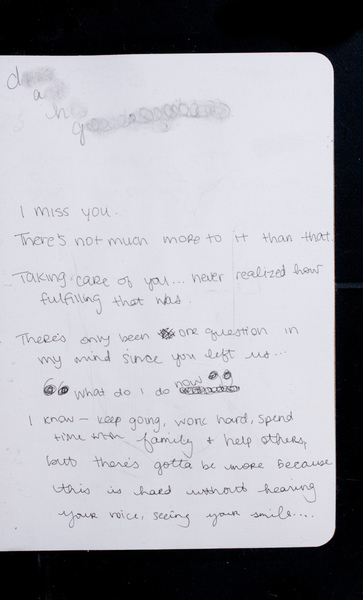 d
a
h
g
I miss you.
There's not much more to it than that.
Taking care of you... never realized how
fulfilling that was.
There's only been one question in
my mind since you left us...
"What do I do now"
I know - keep going, work hard, spend
time with family + help others,
but there's gotta be more because
this is hard without hearing
your voice, seeing your smile....